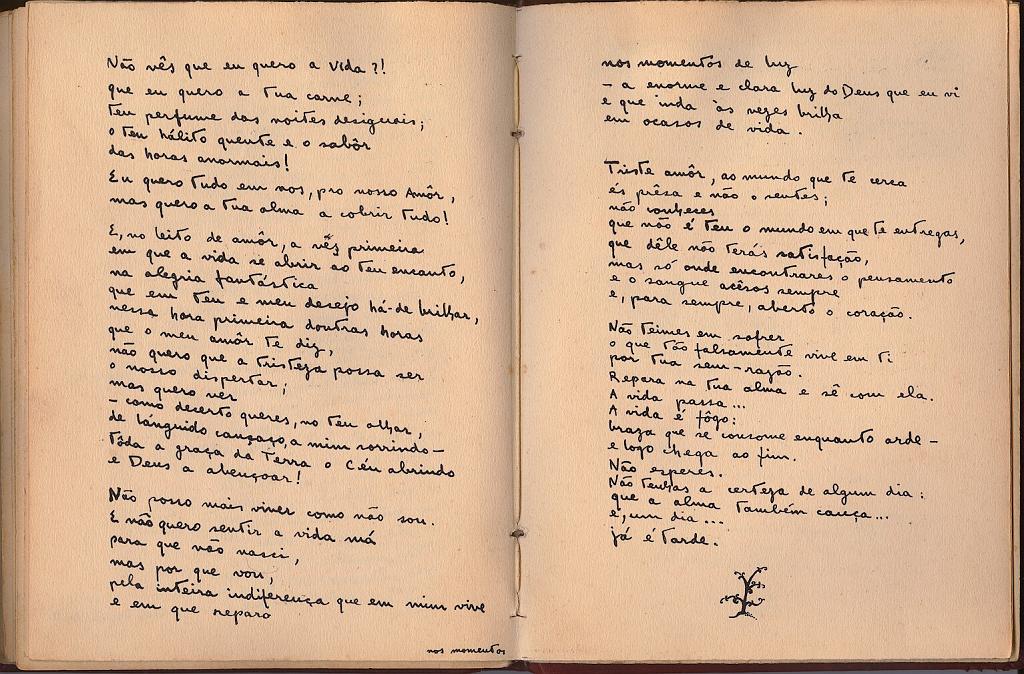 Não vês que eu quero a Vida?!
que eu quero a tua carne;
teu perfume das noites desiguais;
o teu hálito quente e o sabôr
das horas anormais!
Eu quero tudo em nos, pro nosso Amôr,
mas quero a tua alma a cobrir tudo!
E, no leito de amôr, a vêz primeira
em que a vida se abrir ao teu encanto,
na alegria fantástica
que em teu e meu desejo há-de brilhar,
nessa hora primeira doutras horas
que o meu amôr te diz,
não quero que a tristeza possa ser
o nosso dispertar;
mas quero ver
- como decerto queres, no teu olhar,
de lánguido cançaço, a mim sorrindo -
tôda a graça da Terra o Céu abrindo
e Deus a abençoar!
Não posso mais viver como não sou.
E não quero sentir a vida má
para que não nasci,
mas por que vou,
pela inteira indiferença que em mim vive
e em que reparo
nos momentos
nos momentos de luz
- a enorme e clara luz do Deus que eu vi
e que inda às vezes brilha
em ocasos de vida.
Triste amôr, ao mundo que te cerca
és prêsa e não o sentes;
não conheces
que não é teu o mundo em que te entregas,
que dêle não terás satisfação,
mas só onde encontrares o pensamento
e o sangue acêsos sempre
e, para sempre, aberto o coração.
Não teimes em sofrer
o que tão falsamente vive em ti
por tua sem-razão.
Repara na tua alma e sê com ela.
A vida passa...
A vida é fôgo:
braza que se consome enquanto arde -
e logo chega ao fim.
Não esperes.
Não tenhas a certeza de algum dia:
que a alma também cança...
e, um dia...
já é tarde.